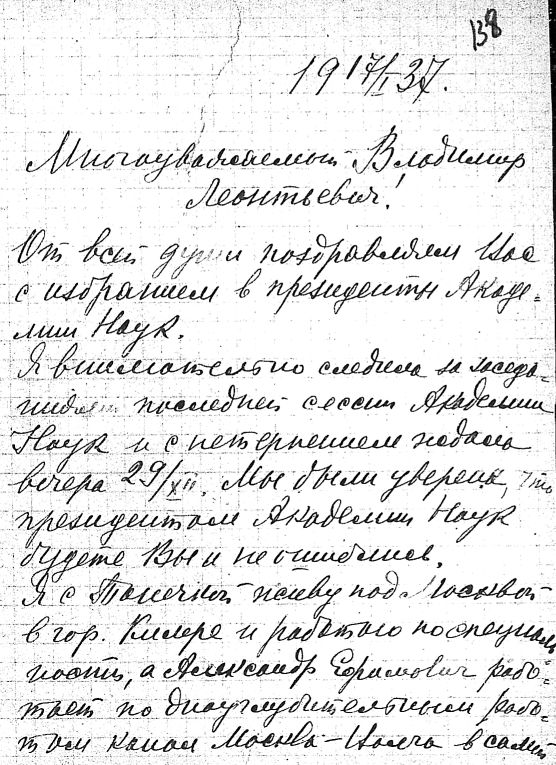 138
19 17/I 37.
Многоуважаемый Владимир
Леонтьевич!
От всей души поздравляем Вас
с избранием в президенты Акаде=
мии Наук.
Я внимательно следила за заседа=
ниями последней сессии Академии
Наук и с нетерпением ждала
вечера 29/XII. Мы были уверены, что
президентом Академии Наук
будете Вы и не ошиблись.
Я с Танечкой живу под Москвой
в гор. и работаю по специаль
ности, а Александр Ефимович рабо=
тает по дноуглубительным рабо=
там канал Москва-Волга в самой